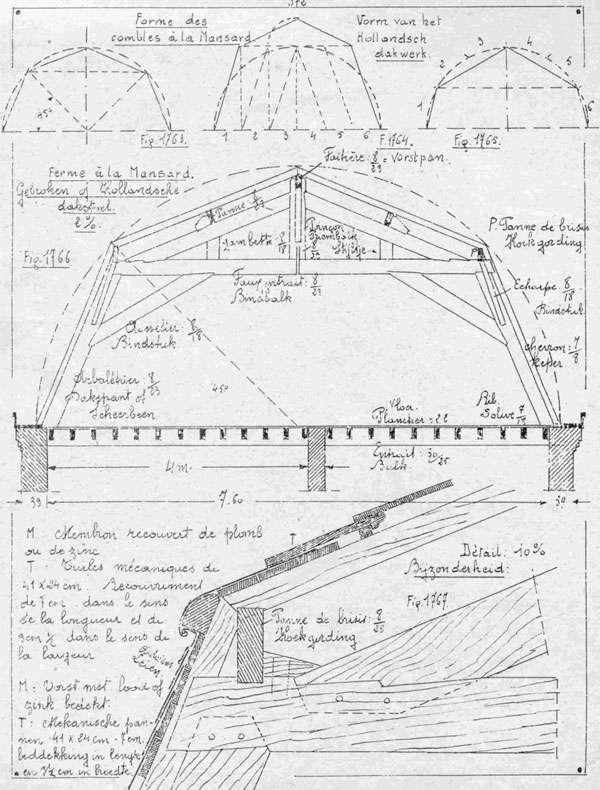 Forme des
combles à la Mansard
Vorm van het
Hollandsch
dakwerk.
45°
Fig. 1763.
1 2 3 4 5 6
F. 1764.
1 2 3 4 5 6
Fig. 1765.
Ferme à la Mansard.
Gebroken of Hollandsche
dakstel.
2%.
Fig. 1766
Faîtière: 8/23 = Vorstpan.
Panne: 8/23
Jambette 8/18
Poinçon
8/22
Stijltje
P. Panne de brisis
Hoekgording
P
Faux-entrait: 8/23
Bindbalk
Echarpe: 8/18
Bindstuk
Aisselier: 8/18
Bindstuk
chevron: 7/8
keper
Arbalétrier: 8/23
Dakspant of
Scheerbeen
45°
Vloer
Plancher: 22
Rib.
Solive 7/15
Entrait: 30/25
Balk
4 m.
39
7.60
39
M: Membron recouvert de plomb
ou de zinc
T: Tuiles mécaniques de
41 x 24 cm. Recouvrement
de 7 cm. dans le sens
de la longueur et de
3 cm ½ dans le sens de
la largeur
M: Vorst met lood of
zink bedekt.
T: Mekanische pan-
nen 41 x 24 cm - 7 cm.
beddekking in lengte
en 3½ cm in breedte.
T
Détail: 10%
Byzonderheid:
Fig. 1767
Panne de brisis: 8/23
Hoekgording